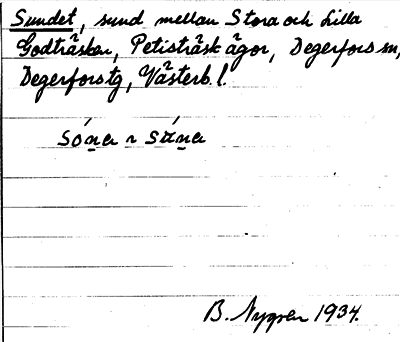 Sundet, sund mellan Stora och Lilla
Godträsken, Petisträsk ägor, Degerfors sn,
Degerforstg, Västerb. l.
B. Nygren 1934.